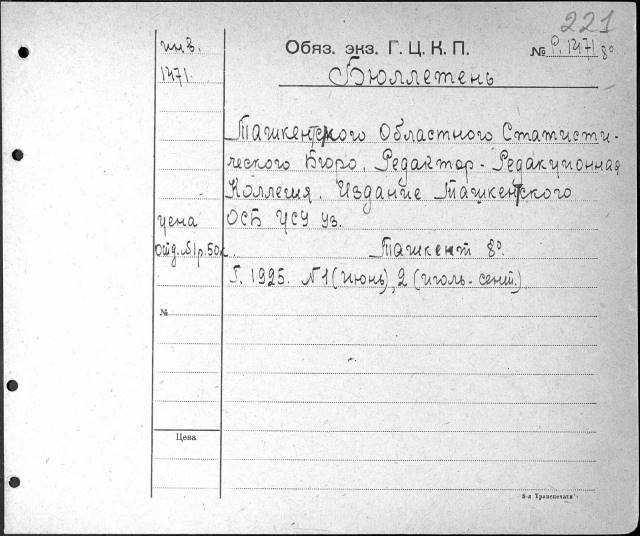 221
инв. Обяз. экз. Г. Ц. К. П. № Р. 1471 8°
1471. Бюллетень
Ташкентского Областного Статисти-
ческого Бюро. Редактор - Редакционная
Коллегия. Издание Ташкентского
цена ОСБ ЦСУ Уз.
отд. № 1 р. 50 к. Ташкент 8°
Г. 1925. № 1 (июнь), 2 (июль-сент.)
№
Цена
8-я Транспечати